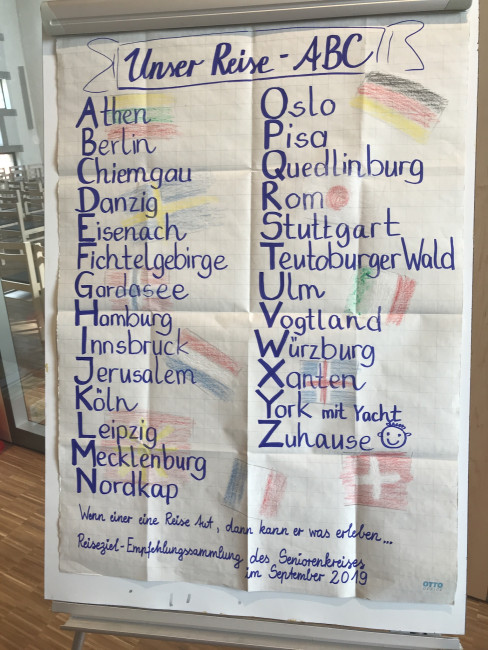 Unser Reise-ABC
Athen
Berlin
Chiemgau
Danzig
Eisenach
Fichtelgebirge
Gardasee
Hamburg
Innsbruck
Jerusalem
Köln
Leipzig
Mecklenburg
Nordkap
Oslo
Pisa
Quedlinburg
Rom
Stuttgart
Teutoburger Wald
Ulm
Vogtland
Würzburg
Xanten
York mit Yacht
Zuhause
Wenn einer eine Reise tut, dann kann er was erleben...
Reiseziel-Empfehlungssammlung des Seniorenkreises
im September 2019
OTTO